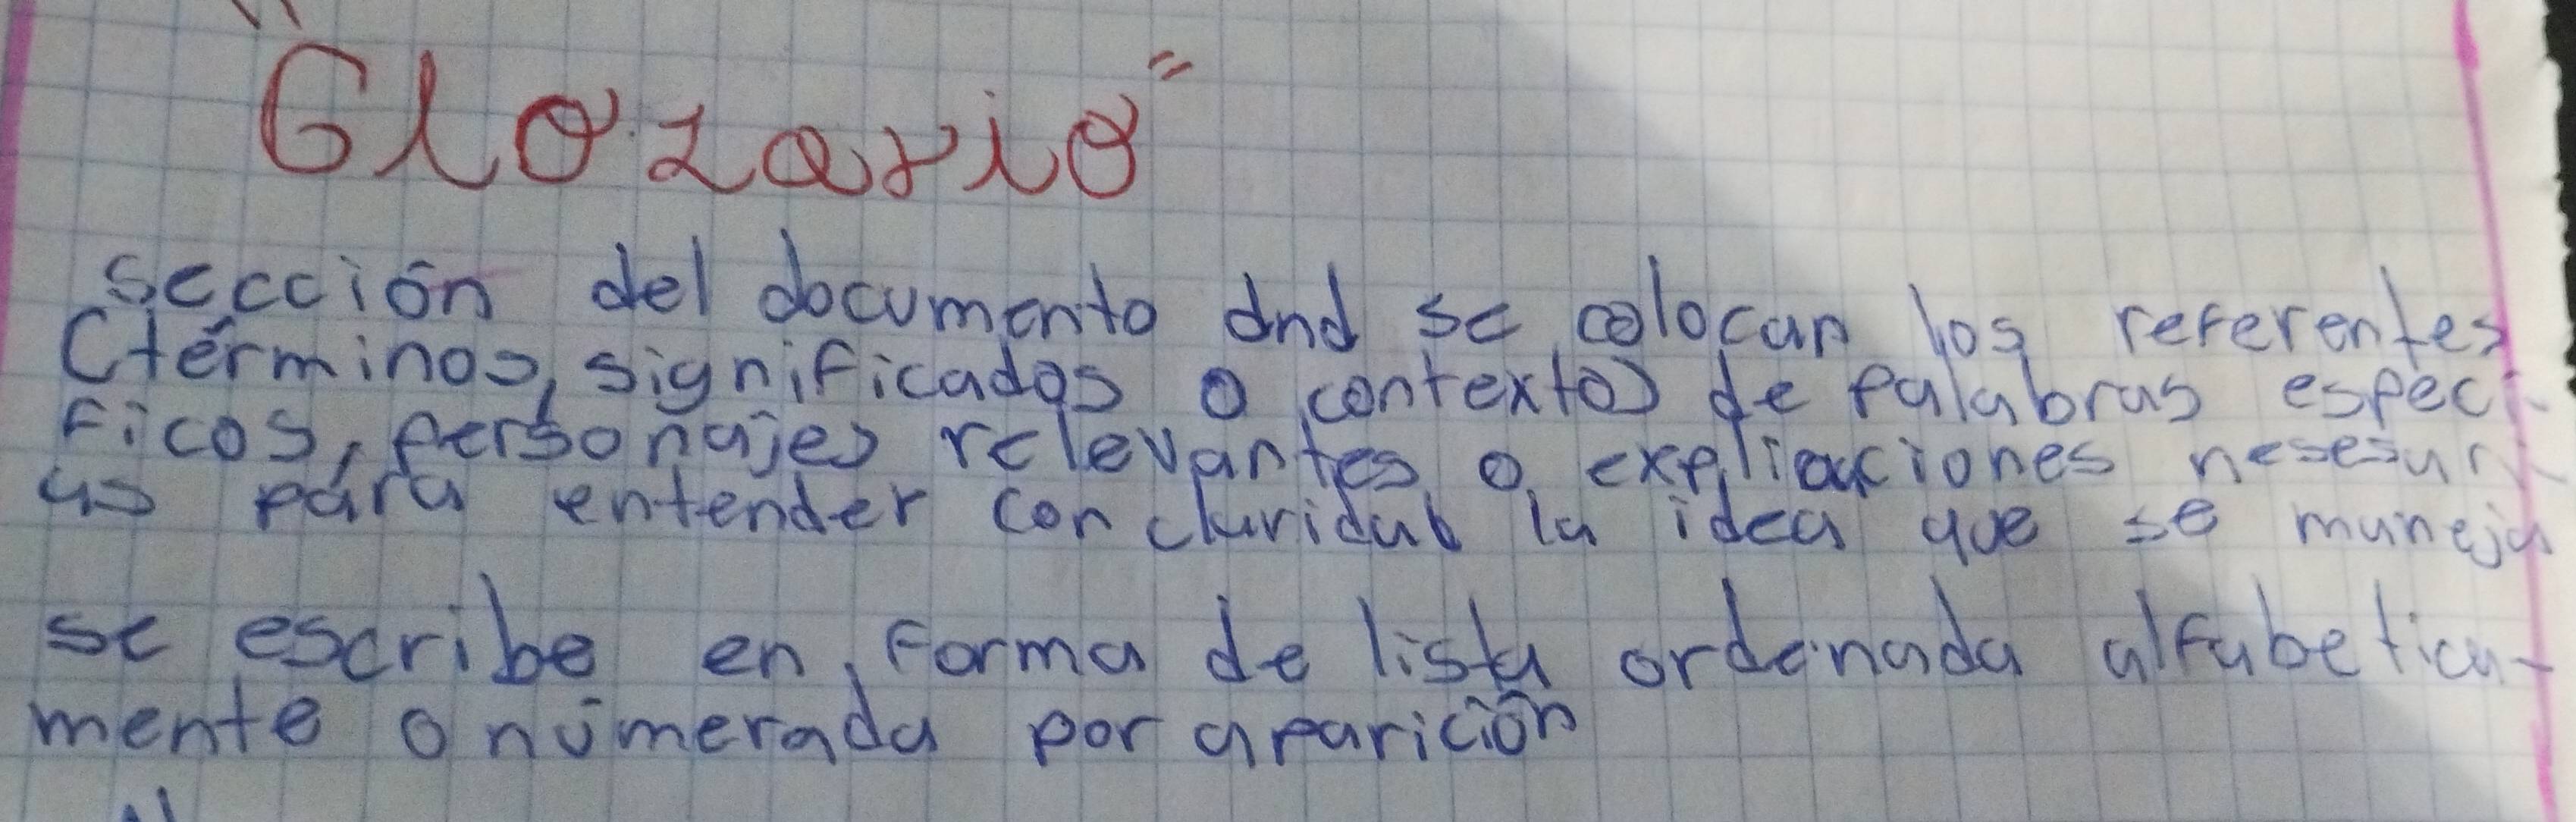 "Glozario"
sección del documento dnd se colocan los referentes
(términos, significados o contextos de palabras especi-
ficos, personajes relevantes o expliaciones nesesari
as para entender con claridad la idea que se maneja
se escribe en forma de lista ordenada alfabetica-
mente o númerada por aparición